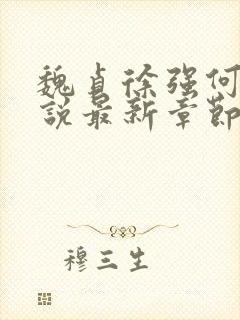 魏貞徐强何
說最新章節
穆三生